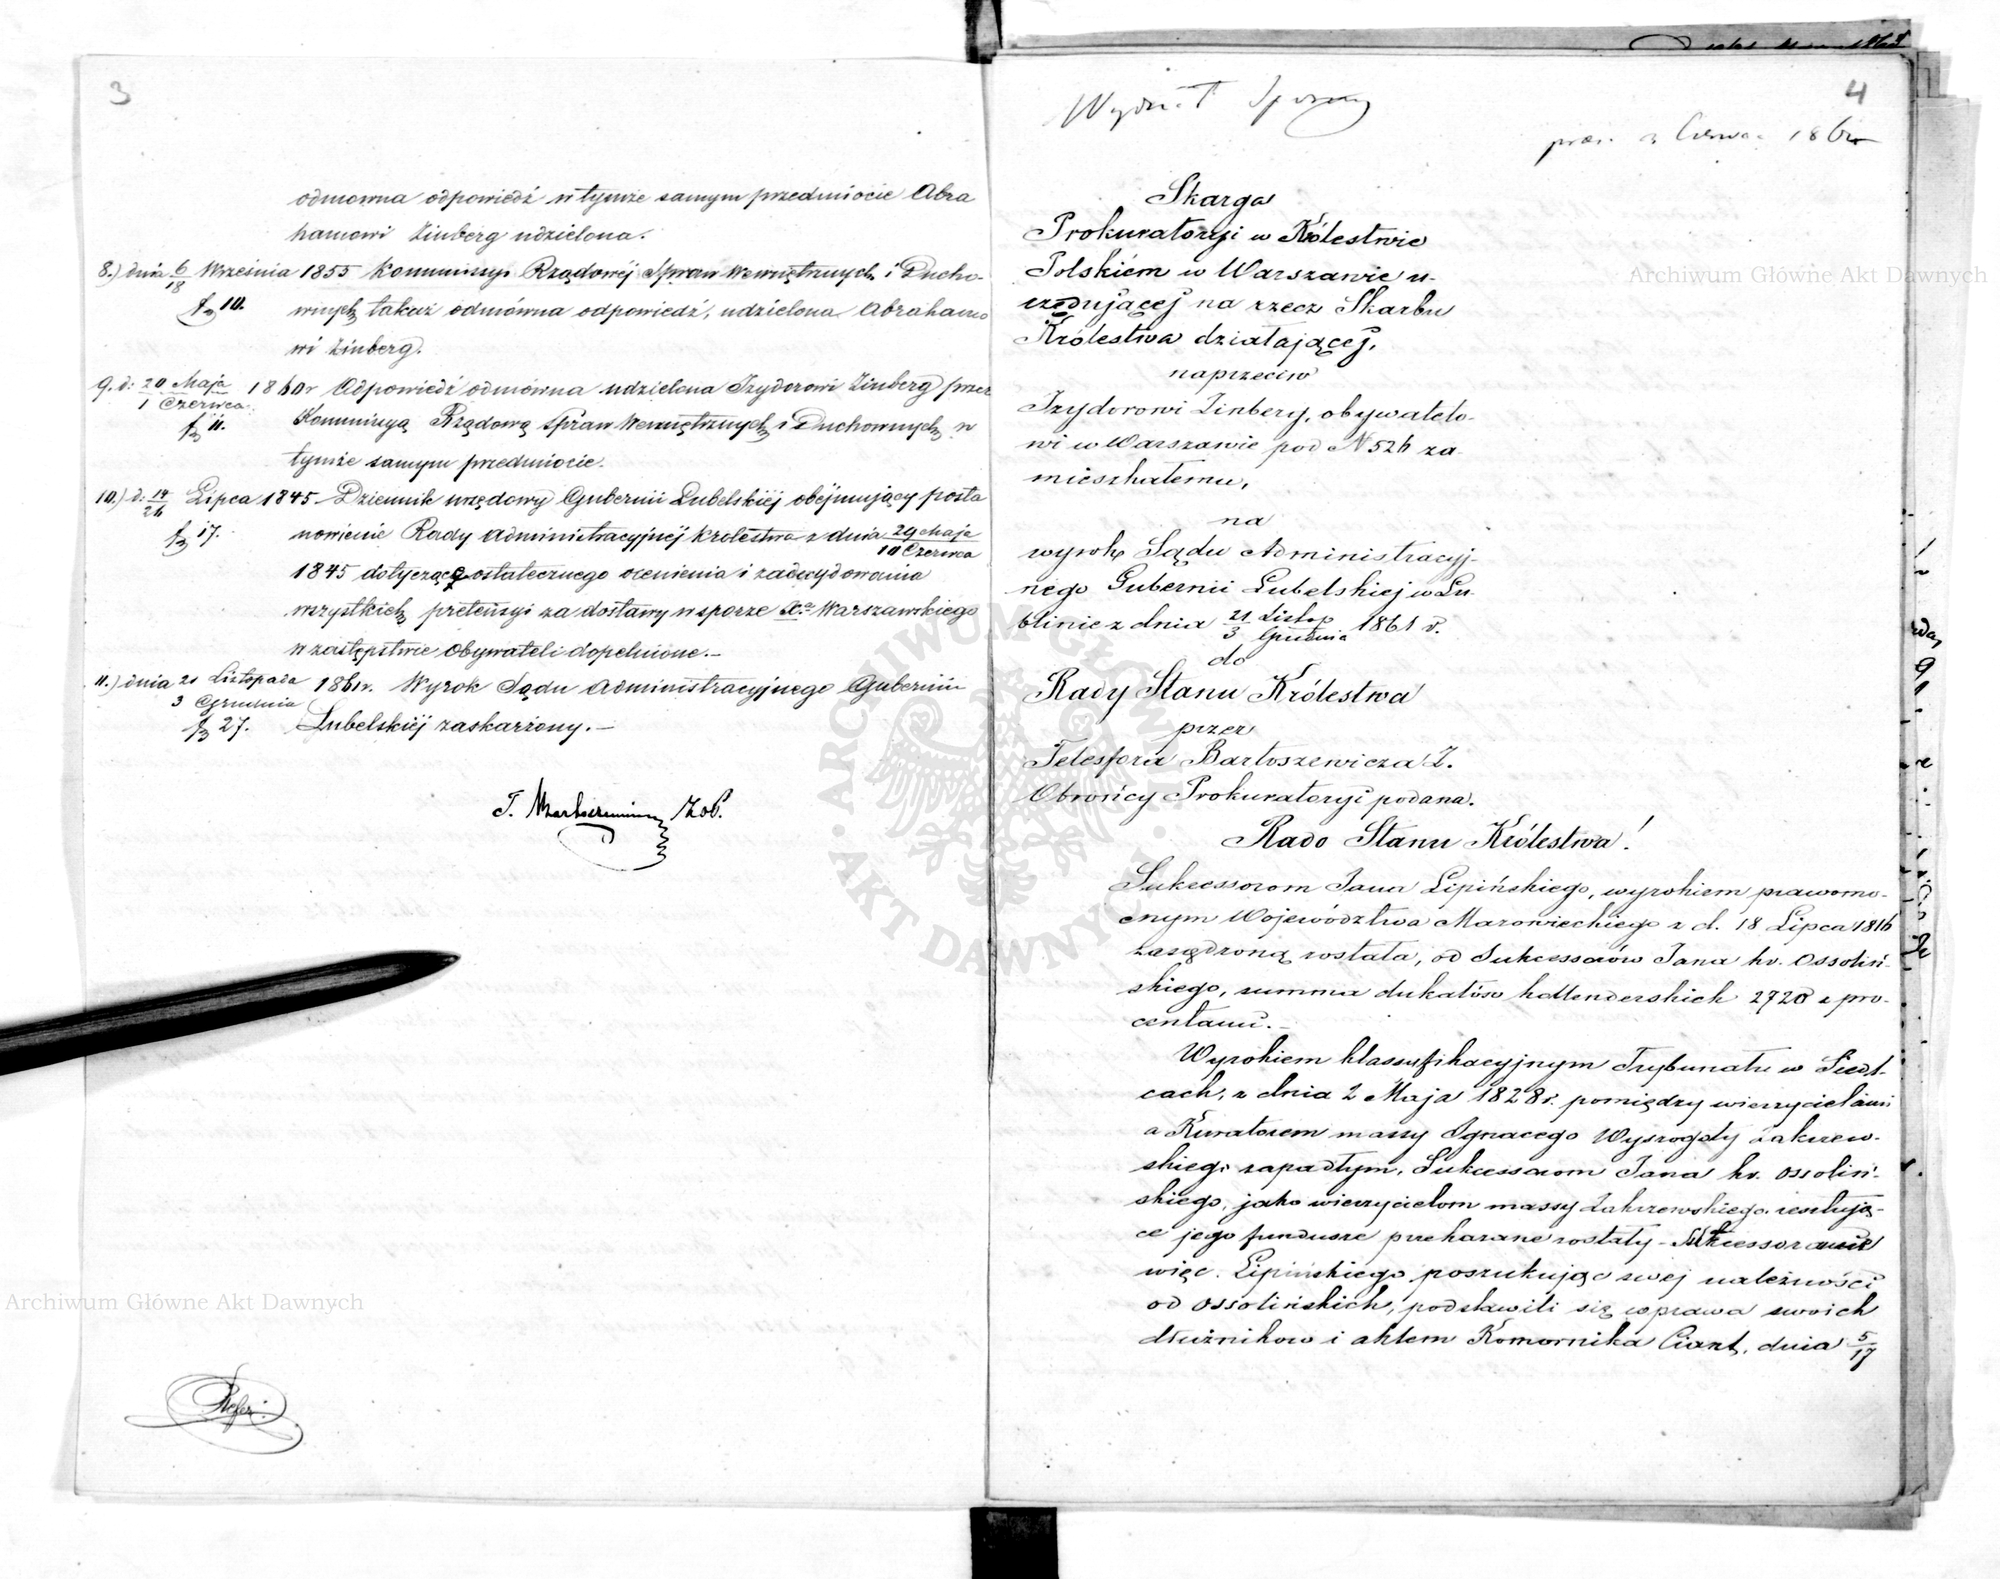 3
odmowna odpowiedź w tymże samym przedmiocie Abra
hamowi Zinberg udzielona.
8.) dnia 6/18 Września 1855 Kommissyi Rządowéj Spraw Wewnętrznych i Ducho-
fo 10. wnych takaż odmówna odpowiedź, udzielona Abrahamo
wi Zinberg.
9. d: 20 Maja / 1 Czerwca 1860r Odpowiedź odmówna udzielona Izydorowi Zinberg przez
fo 11. Kommissyą Rządową Spraw Wewnętrznych i Duchownych w
tymże samym przedmiocie.
10.) d: 14/26 Lipca 1845 Dziennik urzędowy Gubernii Lubelskiéj obejmujący posta
fo 17. nowienie Rady Administracyjnéj Królestwa z dnia 29 Maja / 10 Czerwca
1845 dotyczące ostatecznego ocenienia i zadecydowania
wszystkich pretensyi za dostawy w sporze Xa Warszawskiego
w zastępstwie obywateli dopełnione.—
11.) dnia 21 Listopada / 3 Grudnia 1861r. Wyrok Sądu Administracyjnego Gubernii
fo 27. Lubelskiéj zaskarżony.—
T. Bartoszewicz ZOP.
4
Wydział Sporny
prez. 2 Czerwca 1862
Skarga
Prokuratoryi w Królestwie
Polskiém w Warszawie u-
rzędującej na rzecz Skarbu
Królestwa działającej,
naprzeciw
Izydorowi Zinberg, obywatelo-
wi w Warszawie pod N 526 za-
mieszkałemu,
na
wyrok Sądu Administracyj-
nego Gubernii Lubelskiej w Lu-
blinie z dnia 21 Listop / 3 Grudnia 1861 r.
do
Rady Stanu Królestwa
przez
Telesfora Bartoszewicza Z.
Obrońcy Prokuratoryi podana.
Rado Stanu Królestwa!
Sukcessorom Jana Lipińskiego, wyrokiem prawomo-
cnym Województwa Mazowieckiego z d. 18 Lipca 1816
zasądzoną została, od Sukcessorów Jana hr. Ossoliń-
skiego, summa dukatów hollenderskich 2720 z pro-
centami.—
Wyrokiem klassyfikacyjnym Trybunału w Siedl-
cach, z dnia 2 Maja 1828 r. pomiędzy wierzycielami
a Kuratorem massy Ignacego Wyssogoty Zakrzew-
skiego zapadłym, Sukcessorom Jana hr. Ossoliń-
skiego, jako wierzycielom massy Zakrzewskiego resztują-
ce jego fundusze przekazane zostały – Sukcessorowie
więc Lipińskiego poszukując swej należności
od Ossolińskich, podstawili się w prawa swoich
dłużników i aktem Komornika Ciant. dnia 5/17
Archiwum Główne Akt Dawnych
Archiwum Główne Akt Dawnych
ARCHIWUM GŁÓWNE AKT DAWNYCH